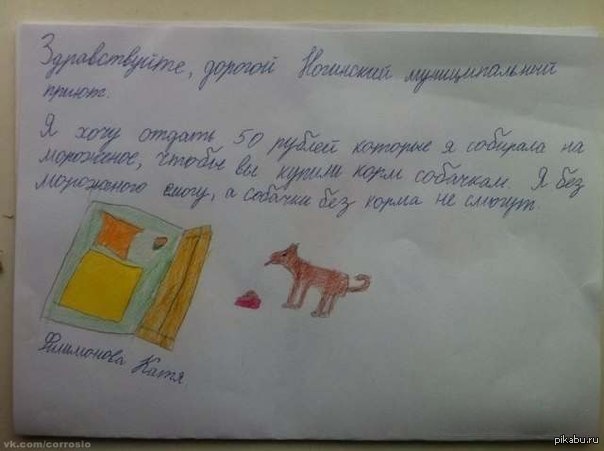 Здравствуйте, дорогой Ногинский муниципальный
приют.
Я хочу отдать 50 рублей которые я собирала на
мороженое, чтобы вы купили корм собачкам. Я без
мороженого смогу, а собачки без корма не смогут.
Филимонова Катя.
vk.com/corrosio
pikabu.ru